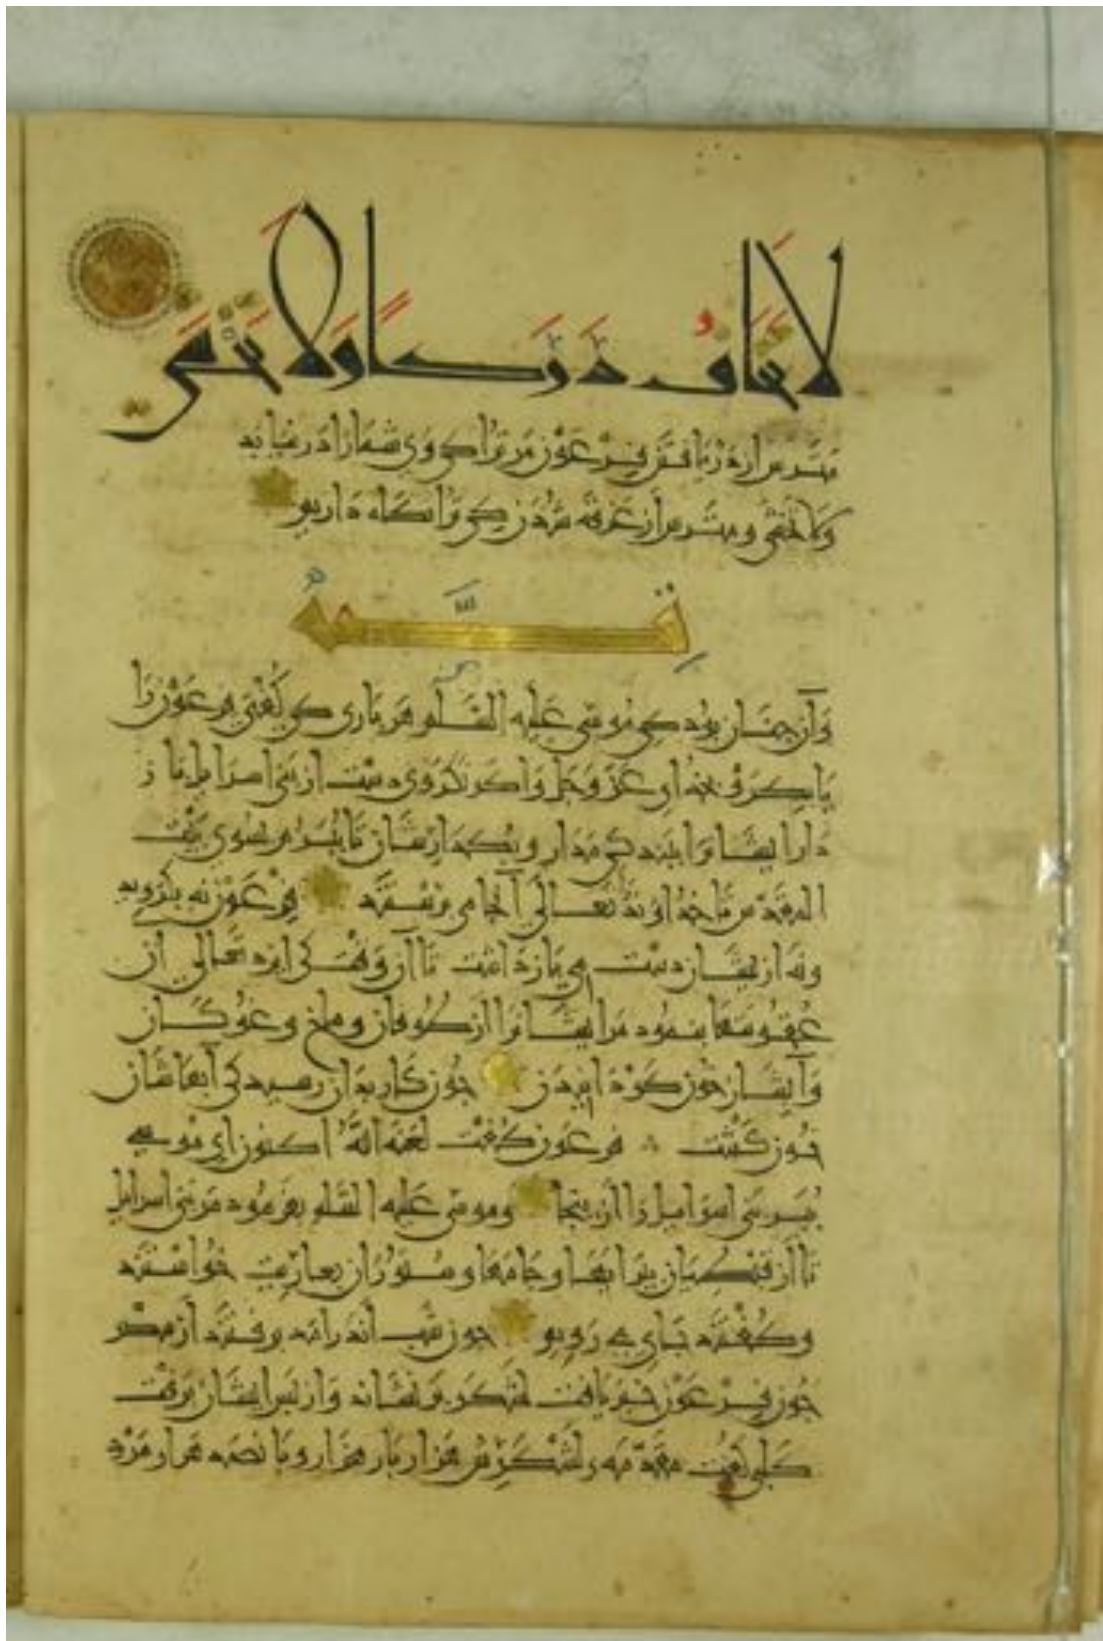 لَا تَخَافُ دَرَكًا وَلَا تَخْشَى
مترس از دریافتن فرعون مر ترا کی وی شما را در نیابد
ولا تخشی و مترس از غرقه شدن کی ترا نگاه داریم
قصه
وآن چنان بود کی موسی علیه السلم هر باری کی گفتی فرعون را
یا بگرو بخدای عز وجل واگر نگروی دست از بنی اسرایل باز
دار ایشانرا بنده کی مدار و بیکمدارشان تا ببرم بسوی بیت
المقدس تا خداوند تعالی آنجا می پرستند فرعون نه بگروید
ونه از یشان دست می بازداشت تا آن وقت کی ایزد تعالی آن
عقوبتها بنمود مر ایشانرا از طوفان و ملخ و غوکان
وایشان خون کردانیدن چون کار بدان رسید کی آبهاشان
خون گشت فرعون گفت لعنه الله اکنون ای موسی
ببر بنی اسرایل را از ینجا وموسی علیه السلم بفرمود مر بنی اسرایل
تا از قبطیان پیرایها و جامها و ستوران بعاریت خواستند
وگفتند بجای می رویم چون شب اندر آمد برفتند از مصر
چون فرعون خبر یافت لشکر بر نشاند و از پس ایشان برفت
کلبی گفت مقدمه لشکرش هزار بار هزار و پانصد هزار مرد